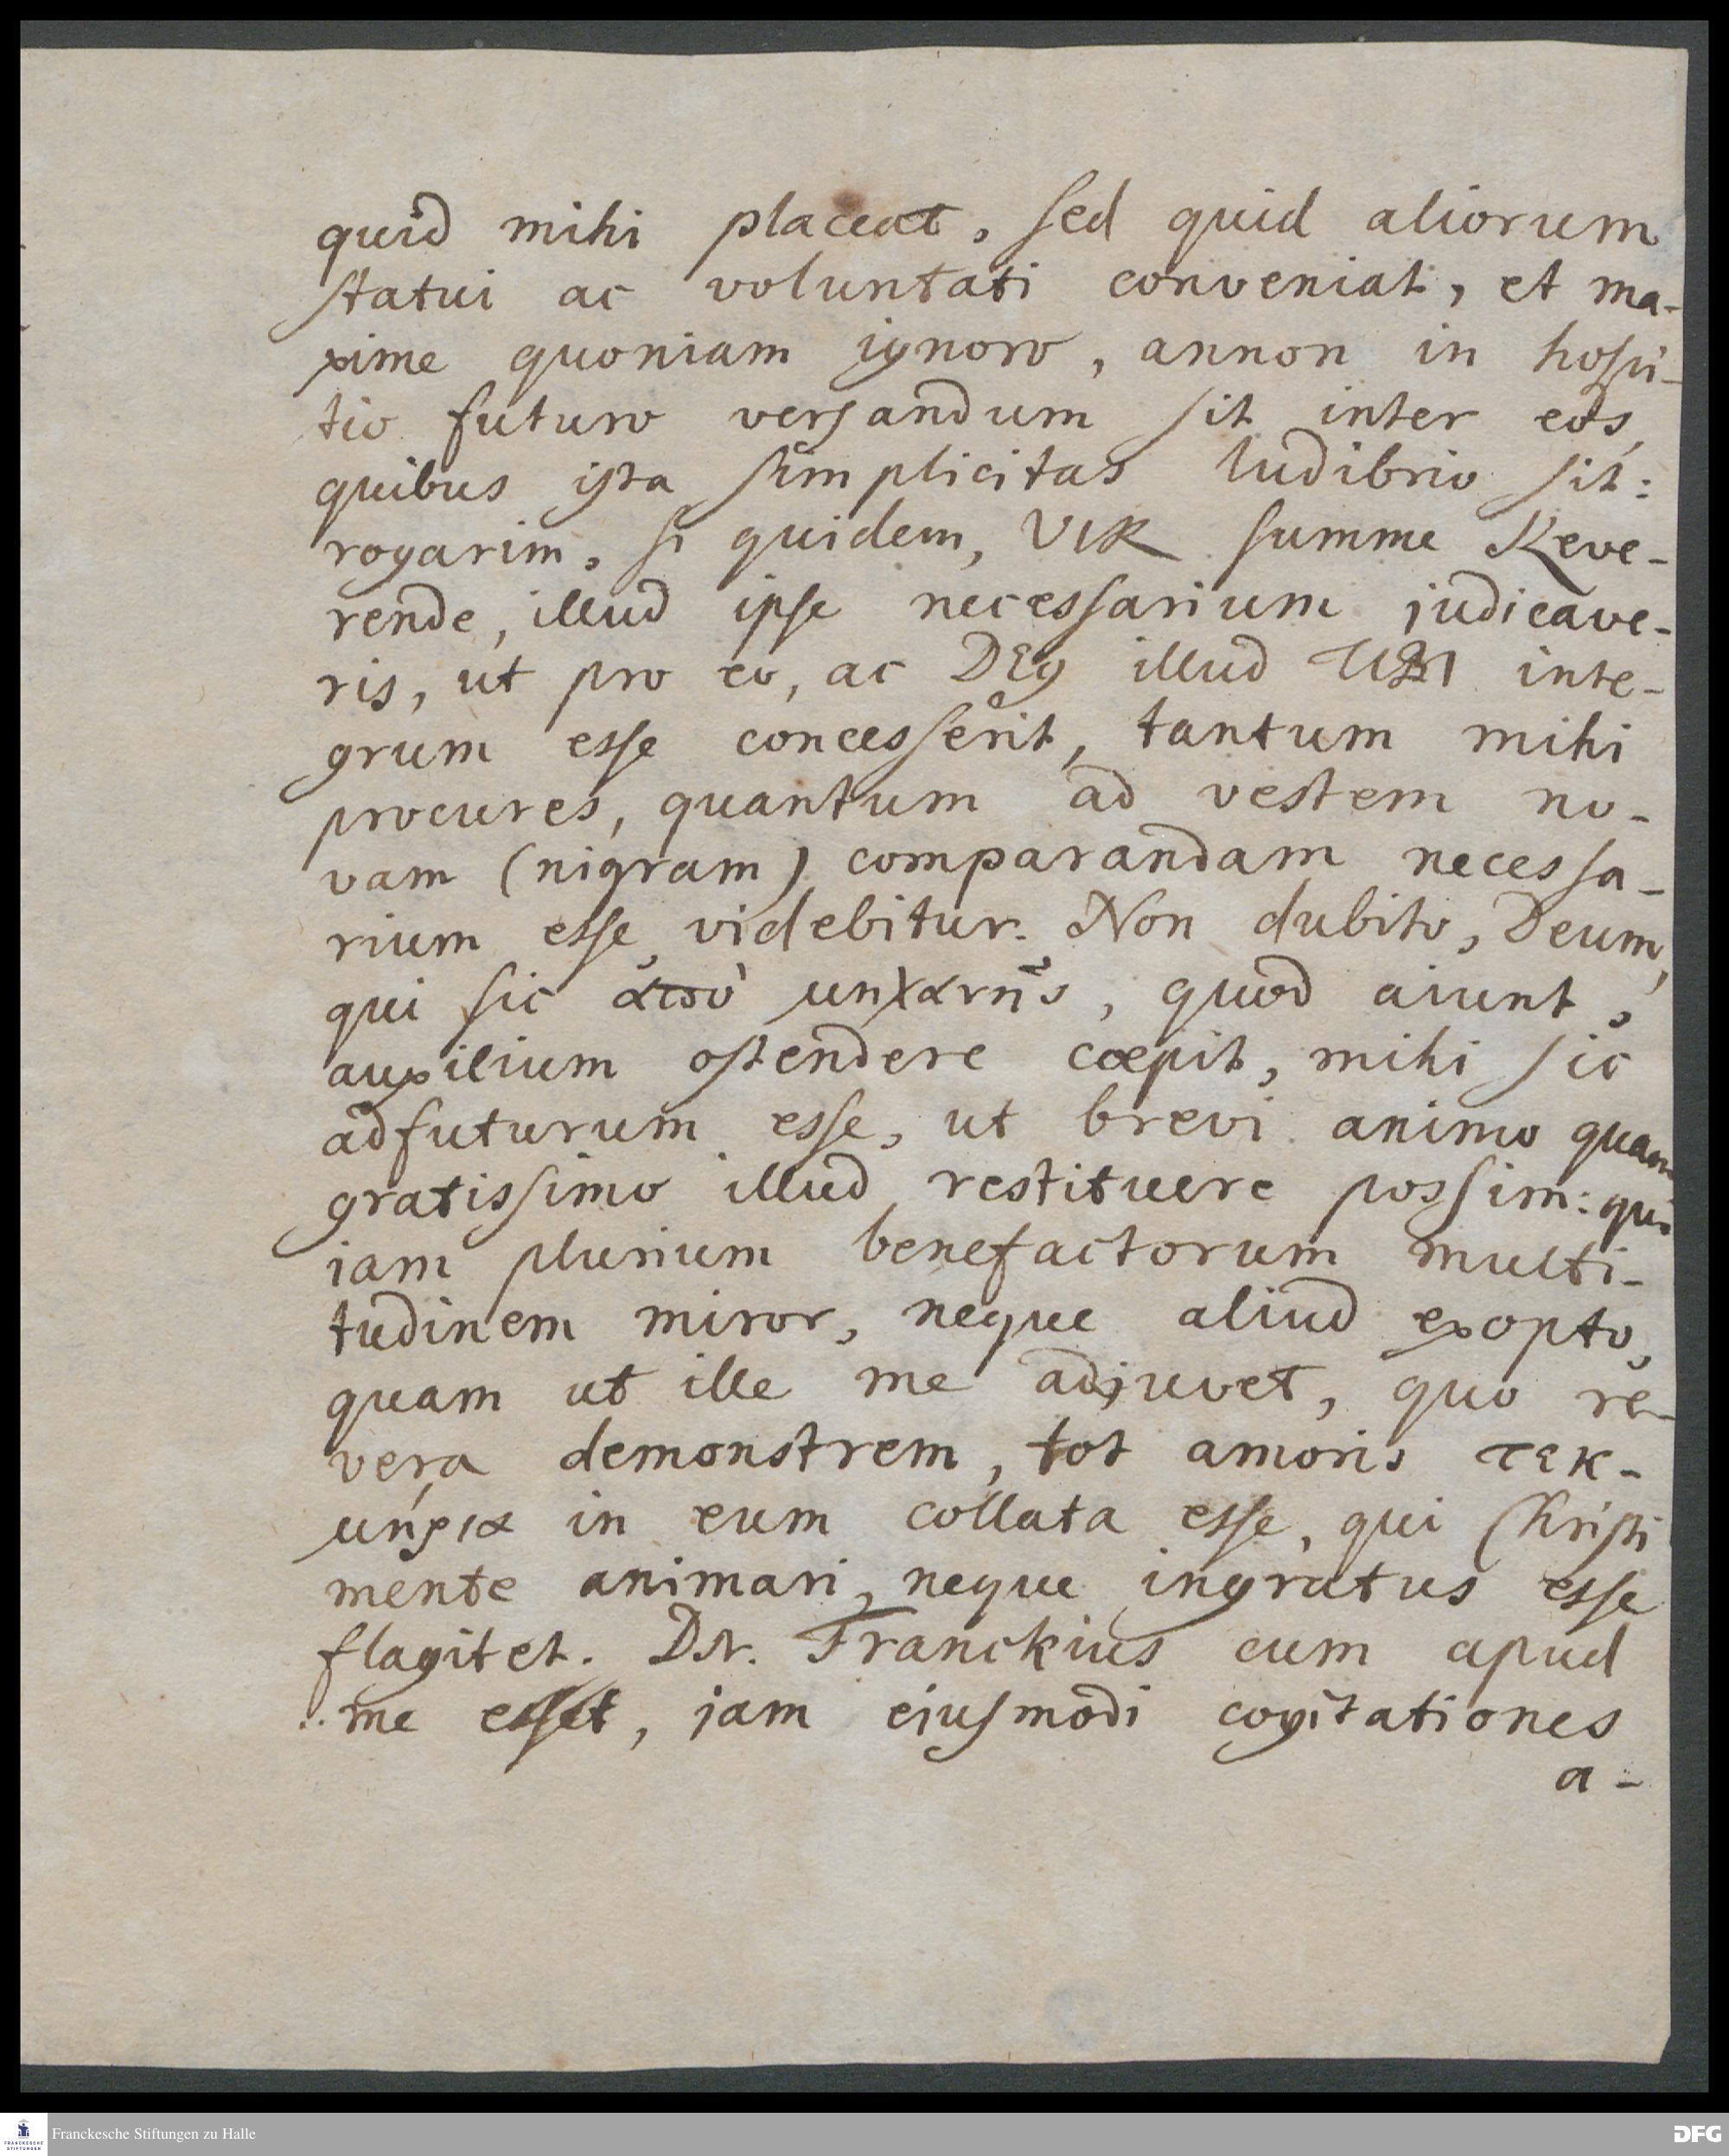 quid mihi placeat, sed quid aliorum
statui ac voluntati conveniat, et ma-
xime quoniam ignoro, annon in hospi-
tio futuro versandum sit inter eos,
quibus ista simplicitas ludibrio sit:
rogarim, si quidem, VIR summe Reve-
rende, illud ipse necessarium judicave-
ris, ut pro eo, ac DEus illud TIBI inte-
grum esse concesserit, tantum mihi
procures, quantum ad vestem no-
vam (nigram) comparandam necessa-
rium esse videbitur. Non dubito, Deum,
qui sic ἀπὸ μηχανῆς, quod aiunt,
auxilium ostendere cœpit, mihi sic
adfuturum esse, ut brevi animo quam
gratissimo illud restituere possim: qui
iam plurium benefactorum multi-
tudinem miror, neque aliud exopto,
quam ut ille me adjuvet, quo re-
vera demonstrem, tot amoris τεκ-
μήρια in eum collata esse, qui Christi
mente animari, neque ingratus esse
flagitet. DN. Franckius cum apud
me esset, jam ejusmodi cogitationes
a-
Franckesche Stiftungen zu Halle
FRANCKESCHE
STIFTUNGEN
DFG